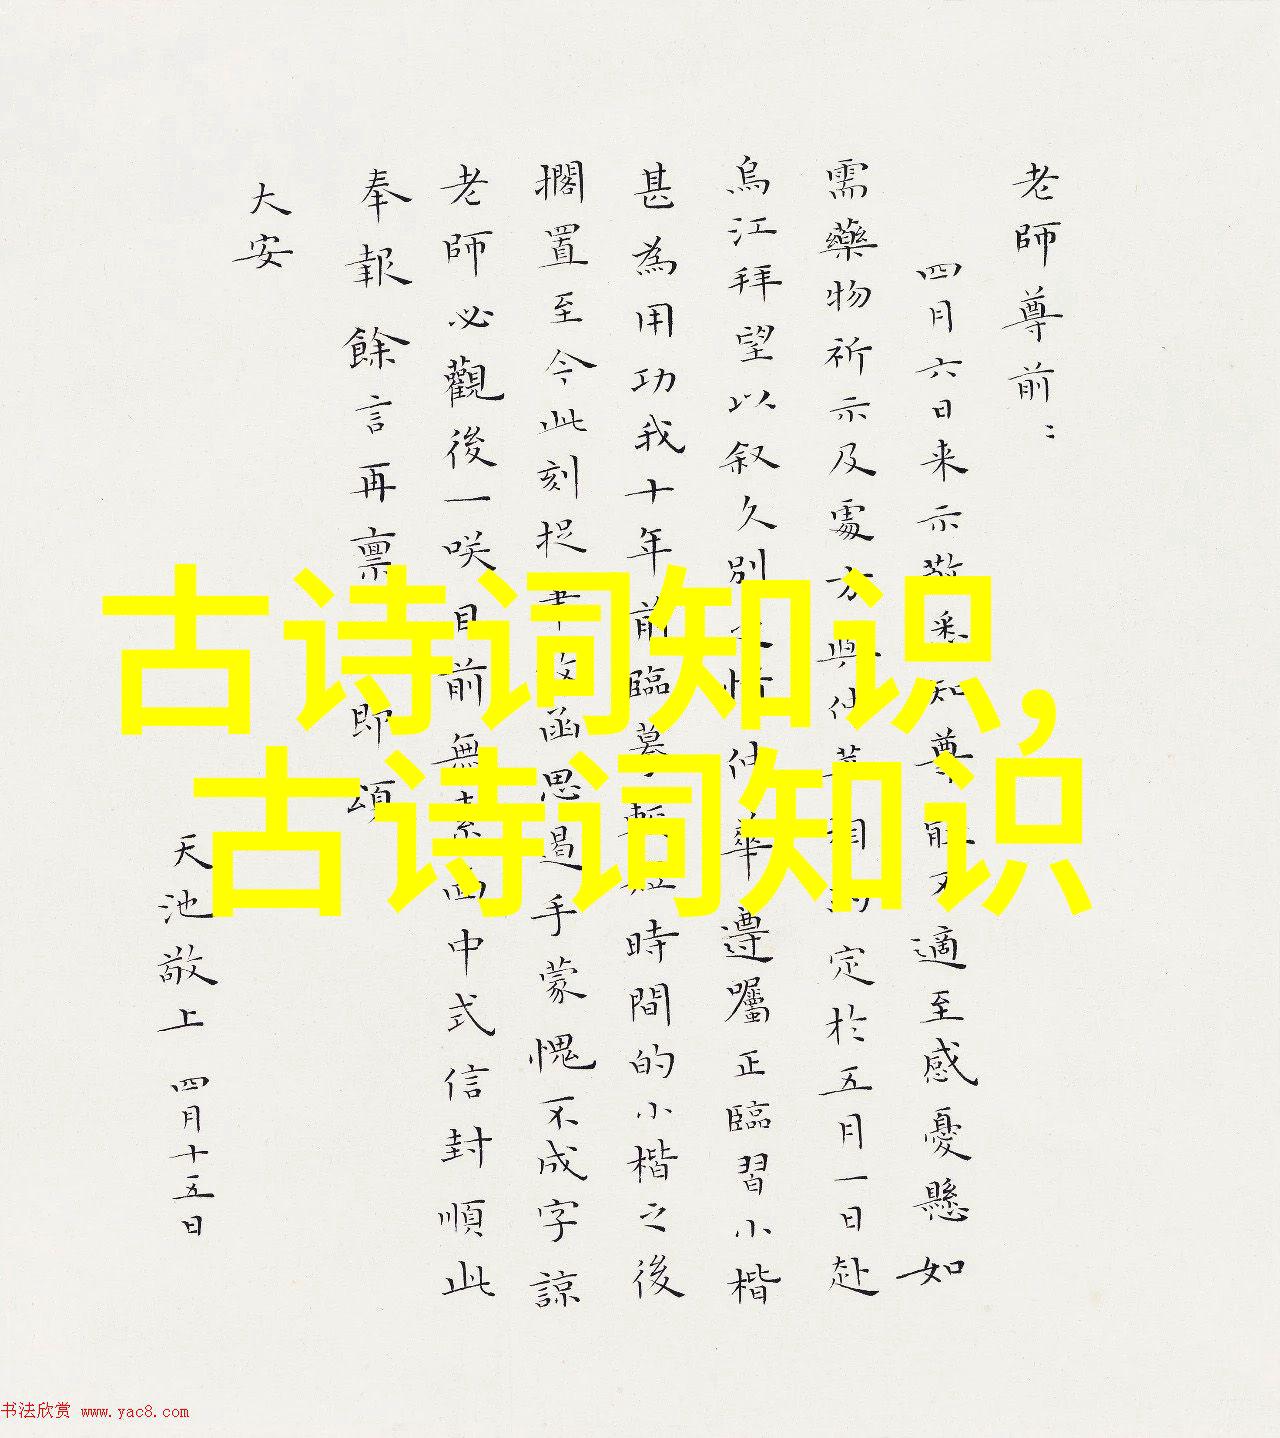 老師尊前：
四月六日来示敬悉知尊 適至感憂懸如
需藥物祈示及處方 定於五月一日赴
烏江拜望以叙久別 仲華遵囑正臨習小楷
甚為用功我十年前臨摹 時間的小楷之後
擱置至今此刻捉 函思遏手蒙愧不成字諒
老師必觀後一咲目前無 中式信封順此
奉報餘言再禀即頌
大安
天池敬上 四月十五日
古诗词知识,
古诗词知识
书法欣赏 www.yac8.com